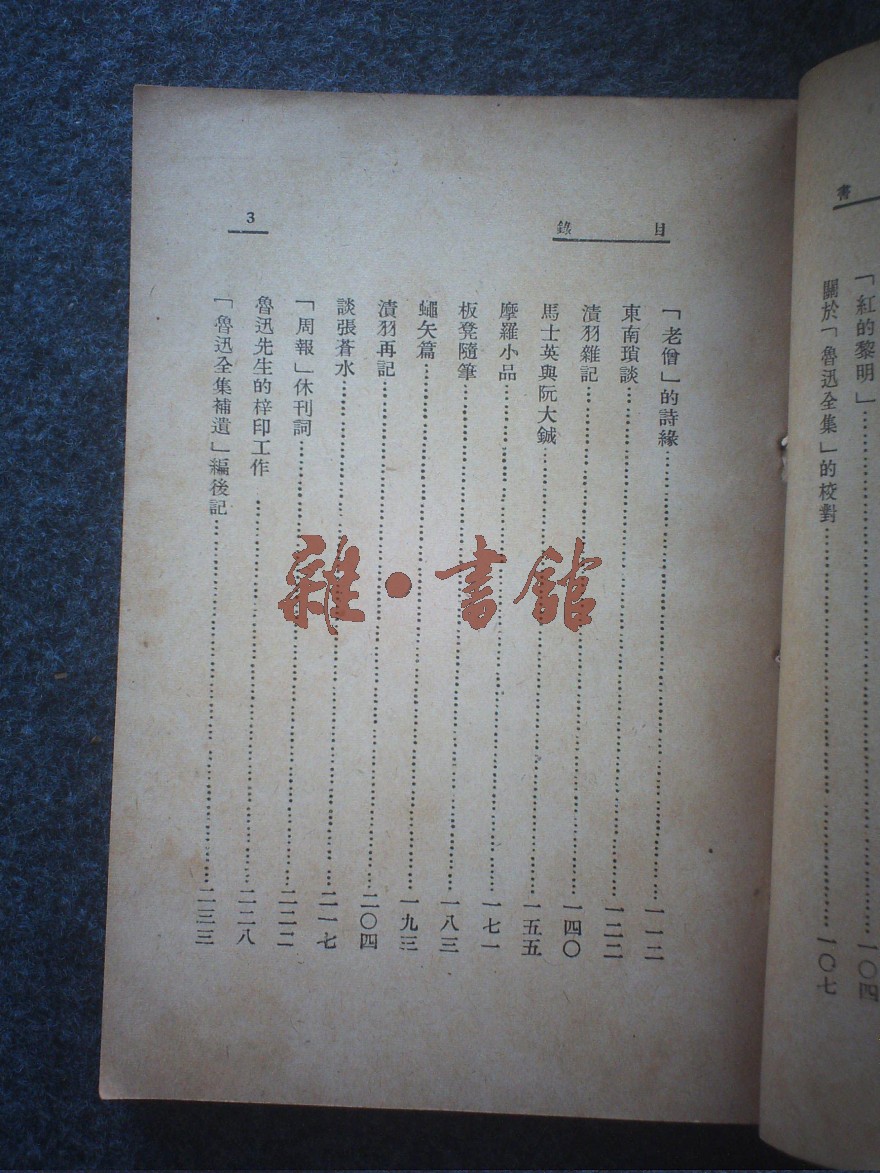 書
「紅的黎明」……一〇四
關於「魯迅全集」的校對……一〇七
目錄
3
「老僧」的詩緣……一一二
東南瑣談……一二二
漬羽雜記……一四〇
馬士英與阮大鋮……一五五
摩羅小品……一七一
板凳隨筆……一八三
蠅矢篇……一九三
漬羽再記……二〇四
談張蒼水……二一七
「周報」休刊詞……二二二
魯迅先生的梓印工作……二二八
「魯迅全集補遺」編後記……二三三
雜·書館